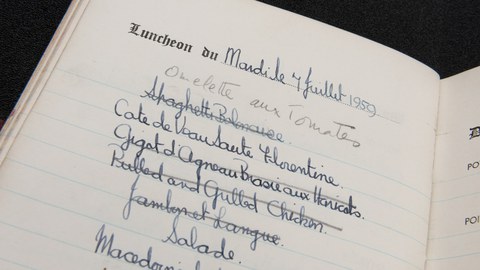 Luncheon du Mardi le 7 Juillet 1959.
Omelette aux Tomates
Spaghetti Bolonaise.
Cote de Veau Sauté Florentine.
Gigot d'Agneau Braisé aux Haricots.
Boiled and Grilled Chicken.
Jambon et Langue.
Salade.